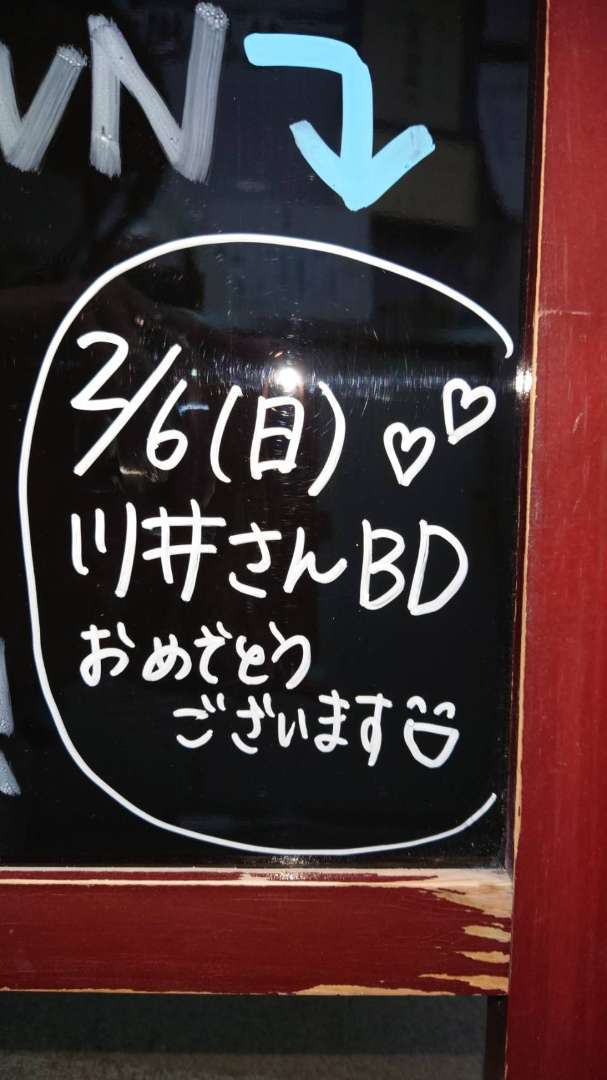 2/6(日)
川井さんBD
おめでとう
ございます